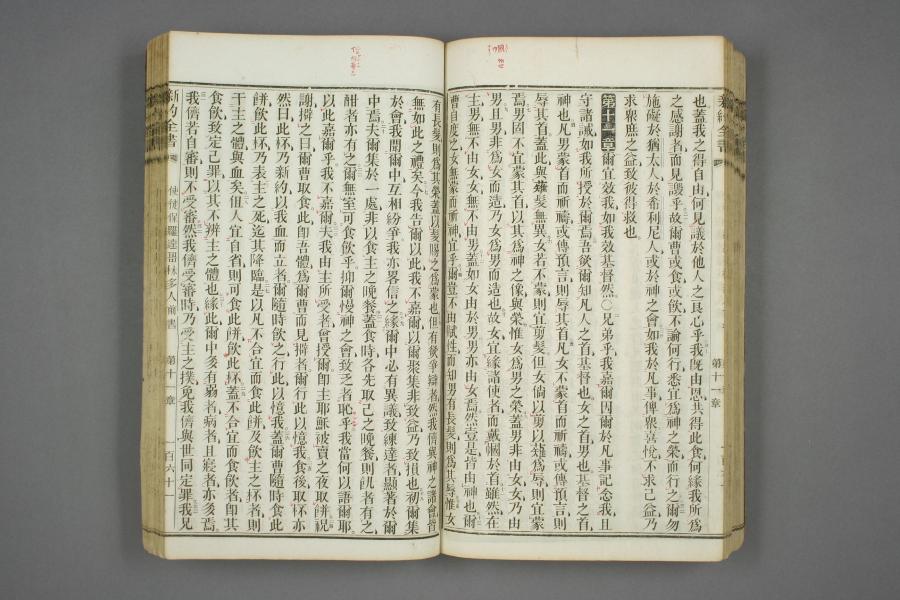 也蓋我之得自由何見議於他人之良心乎我旣由恩共得此食何緣我所爲
之感謝者而見謗乎故爾曹或食或飲不論何行悉宜爲神之榮而行之爾勿
施礙於猶太人於希利尼人或於神之會如我於凡事俾衆喜悅不求己益乃
求衆庶之益致彼得救也
第十一章爾宜效我如我效基督然○兄弟乎我嘉爾因爾於凡事記念我且
守諸誡如我所授於爾焉吾欲爾知凡人之首基督也女之首男也基督之首
神也凡男蒙首而祈禱或傳預言則辱其首凡女不蒙首而祈禱或傳預言則
辱其首蓋此與薙髮無異女若不蒙則宜剪髮但女倘以剪以薙爲辱則宜蒙
焉男固不宜蒙其首以其爲神之像與榮惟女爲男之榮蓋男非由女女乃由
男且男非爲女而造乃女爲男而造也故女宜緣諸使者而戴幗於首雖然在
主男無不由女女無不由男蓋如女由於男男亦由女焉然萬是皆由神也爾
曹自度之女無蒙而祈神宜乎爾豈不由賦性而知男有長髮則爲其辱惟女
有長髮則爲其榮蓋以髮賜之爲蒙也但有欲爭辯者然我儕與神之諸會皆
無如此之禮矣今我告爾以此我不嘉爾以爾聚集非致益乃致損也初爾集
於會我聞爾中互相紛爭我亦畧信之緣爾中必有異議致練達者顯著於爾
中焉夫爾集於一處非以食主之晚餐蓋食時各先取己之晚餐則飢者有之
酣者亦有之爾無室可食飲乎抑爾慢神之會致乏者恥乎我當何以語爾耶
以此嘉爾乎我不嘉爾夫我由主所受者曾授爾卽主耶穌被賣之夜取餅祝
謝擘之曰爾曹取食此卽吾體爲爾曹而見擘者爾行此以憶我食後取杯亦
然曰此杯乃新約以我血而立者爾隨時飲之行此以憶我蓋爾曹隨時食此
餅飲此杯乃表主之死迄其降臨是以凡不合宜而食此餅及飲主之杯者則
干主之體與血矣但人宜自省則可食此餅飲此杯蓋不合宜而食飲者卽其
食飲致定己罪以其不辨主之體也緣此爾中多有弱者病者且寢者亦多焉
我儕若自審則不受審然我儕受審時乃受主之撲免我儕與世同定罪我兄
新約全書
使徒保羅達哥林多人前書
第十一章
一百六十一